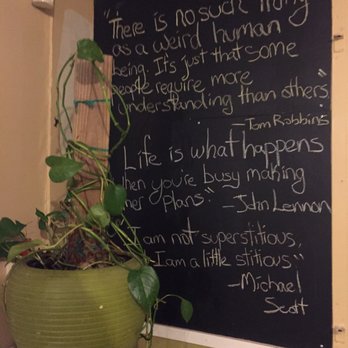 "There is no such thing
as a weird human
being. It's just that some
people require more
understanding than others"
—Tom Robbins
Life is what happens
when you're busy making
her plans." —John Lennon
I am not superstitious,
I am a little stitious"
—Michael
Scott